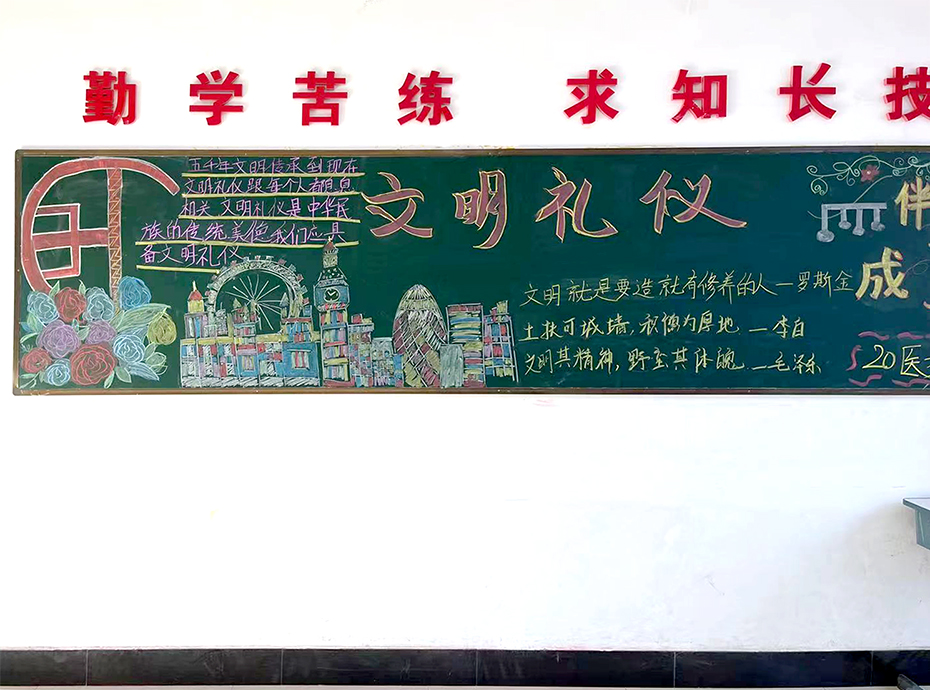 勤学苦练 求知长技
五千年文明传承到现在
文明礼仪跟每个人都息息
相关 文明礼仪是中华民
族的传统美德我们应具
备文明礼仪
文明礼仪
文明就是要造就有修养的人—罗斯金
土扶可城墙,积德为厚地 —李白
文明其精神,野蛮其体魄 —毛泽东
伴
成
20医